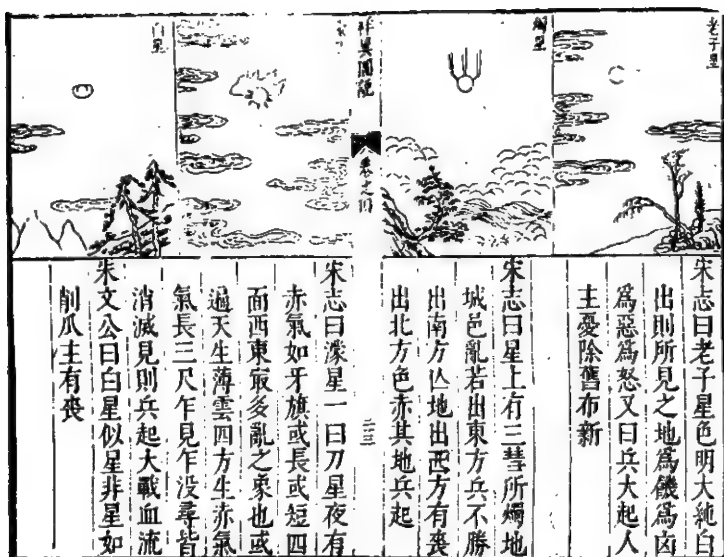 老子星
宋志曰老子星色明大純白
出則所見之地爲饑爲凶
爲惡爲怒又曰兵大起人
主憂除舊布新
燭星
宋志曰星上有三彗所燭地
城邑亂若出東方兵不勝
出南方亾地出西方有喪
出北方色赤其地兵起
祥異圖說
卷之四
二三
宋志曰濛星一曰刀星夜有
赤氣如牙旗或長或短四
面西東㝡多亂之象也或
遍天生薄雲四方生赤氣
氣長三尺乍見乍没尋皆
消滅見則兵起大戰血流
白星
朱文公曰白星似星非星如
削瓜主有喪